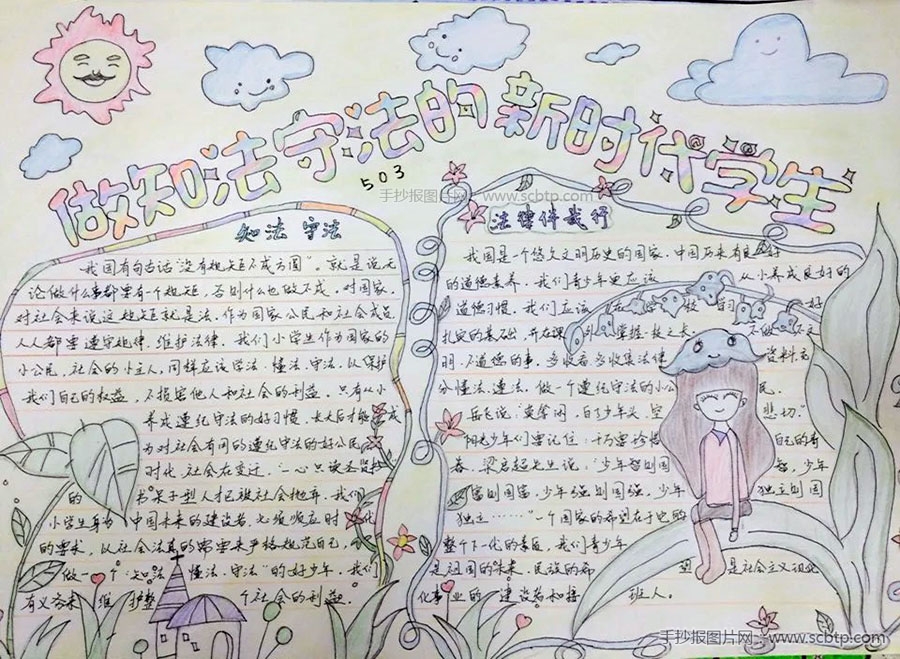 做知法守法的新时代学生
503
手抄报图片网 www.scbtp.com
知法 守法
我国有句古话"没有规矩不成方圆"。就是说无
论做什么事都要有个规矩，否则什么也做不成，对国家、
对社会来说这规矩就是法，作为国家公民和社会成员
人人都要遵守规律，维护法律。我们小学生作为国家的
小公民，社会的小主人，同样应该学法、懂法、守法，以保护
我们自己的权益，不损害他人和社会的利益。只有从小
养成遵纪守法的好习惯，长大后才能成
为对社会有用的遵纪守法的好公民
时代，社会在变迁，"一心只读圣贤
的书呆子型人才已被社会抛弃，我们
小学生身为中国未来的建设者，必须顺应时代
的要求，从社会法的需要来严格规范自己，
做一个"知法、懂法、守法"的好少年，我们
有义务来维护整个社会的利益。
法律伴我行
我国是一个悠久文明历史的国家，中国历来有良好
的道德素养，我们青少年更应该从小养成良好的
道德习惯，我们应该在学校 好
扎实的基础，并在课外 掌握 技之长，不做
明、不道德的事，多收看多收集法律 资料，充
分懂法、遵法，做一个遵纪守法的小公民。
岳飞说"莫等闲，白了少年头，空悲切。"
阳光少年们要记住：千万要珍惜自己的青
春，梁启超先生说："少年智则国智，少年
富则国富，少年强则国强，少年独立则国
独立……"一个国家的希望在于它的
整个下一代的素质，我们青少年
是祖国的未来，民族的希望 是社会主义现代
化事业的建设者和接班人。
手抄报图片网：www.scbtp.com